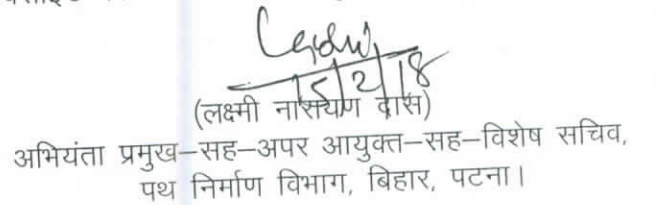 15/2/18
(लक्ष्मी नारायण दास)
अभियंता प्रमुख–सह–अपर आयुक्त–सह–विशेष सचिव,
पथ निर्माण विभाग, बिहार, पटना।